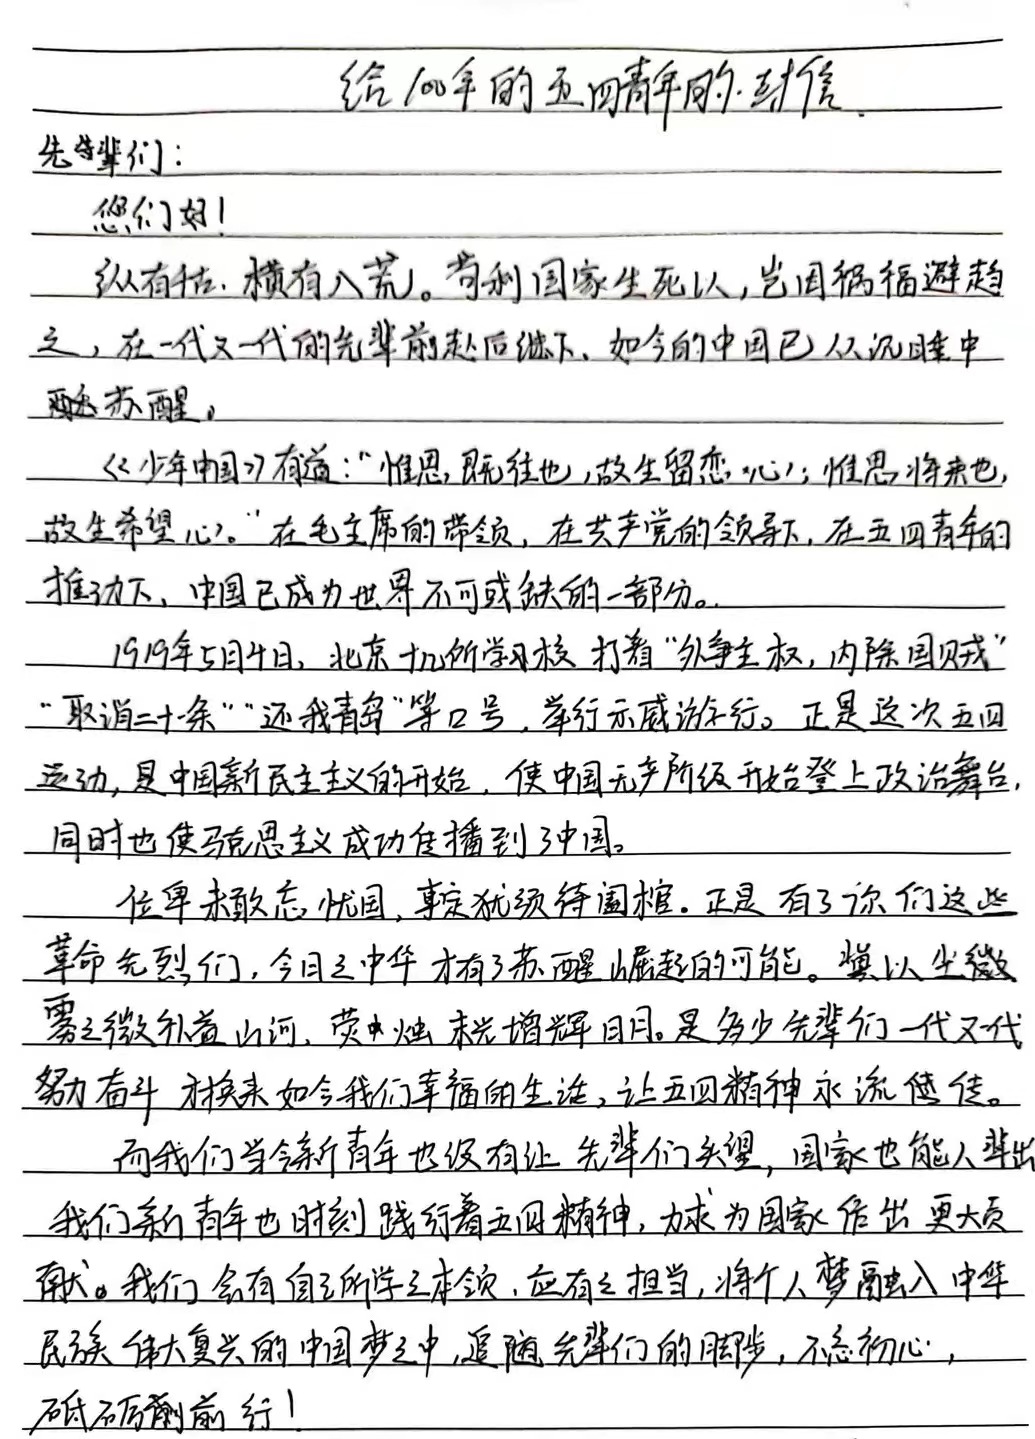 给100年的五四青年的.封信.
先辈们：
您们好！
纵有千古.横有八荒。苟利国家生死以，岂因祸福避趋
之，在一代又一代的先辈前赴后继下、如今的中国已从沉睡中
苏醒。
《少年中国》有道：“惟思既往也，故生留恋心；惟思将来也，
故生希望心。”在毛主席的带领，在共产党的领导下，在五四青年的
推动下、中国已成为世界不可或缺的一部分。
1919年5月4日，北京十几所学校打着“外争主权，内除国贼”
“取消二十一条”“还我青岛”等口号，举行示威游行。正是这次五四
运动，是中国新民主主义的开始，使中国无产阶级开始登上政治舞台，
同时也使马克思主义成功传播到了中国。
位卑未敢忘忧国，事定犹须待阖棺。正是有了你们这些
革命先烈们，今日之中华才有了苏醒崛起的可能。冀以尘微
雾之微补益山河，荧烛末光增辉日月。是多少先辈们一代又代
努力奋斗才换来如今我们幸福的生活，让五四精神永流传。
而我们当今新青年也没有让先辈们失望，国家也能人辈出
我们新青年也时刻践行着五四精神，力求为国家作出更大贡
献。我们会有自己所学之本领，应有之担当，将个人梦融入中华
民族伟大复兴的中国梦之中，追随先辈们的脚步，不忘初心，
砥砺前行！